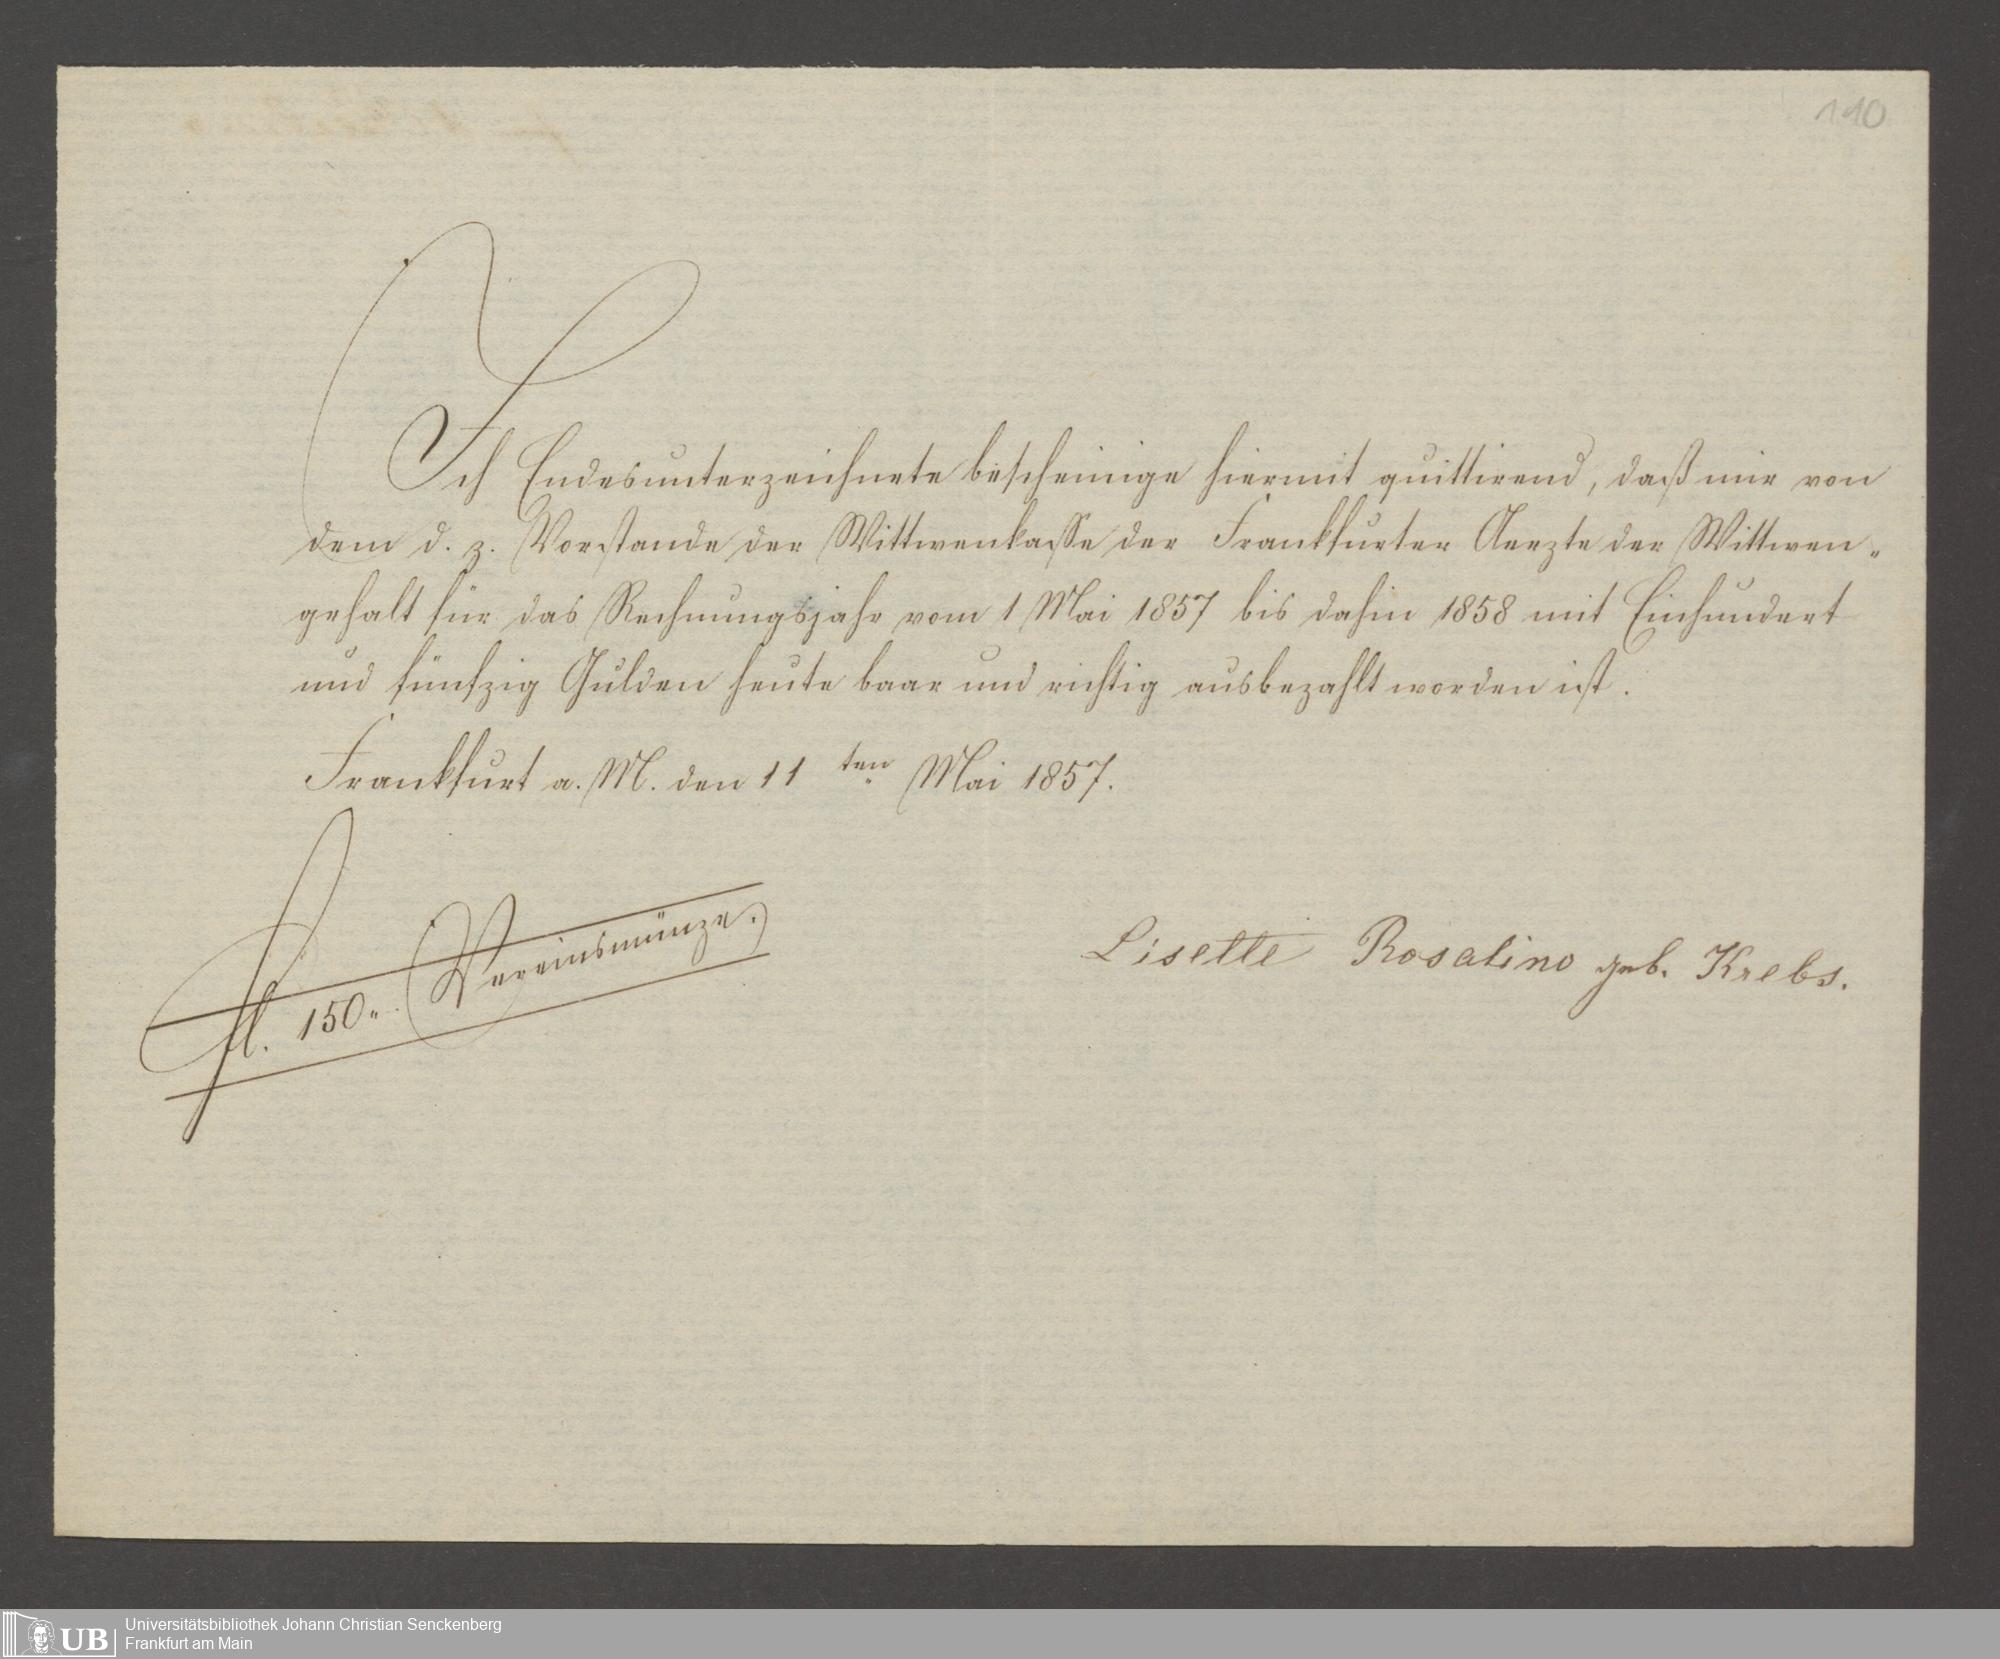 110
Ich Endesunterzeichnete bescheinige hiermit quittirend, daß mir von
dem d. z. Vorstande der Wittwenkasse der Frankfurter Aerzte der Wittwen„
gehalt für das Rechnungsjahr vom 1 Mai 1857 bis dahin 1858 mit Einhundert
und fünfzig Gulden heute baar und richtig ausbezahlt worden ist.
Frankfurt a. M. den 11ten Mai 1857.
fl. 150„. Vereinsmünze.
Lisette Rosalino geb. Krebs.
UB
Universitätsbibliothek Johann Christian Senckenberg
Frankfurt am Main